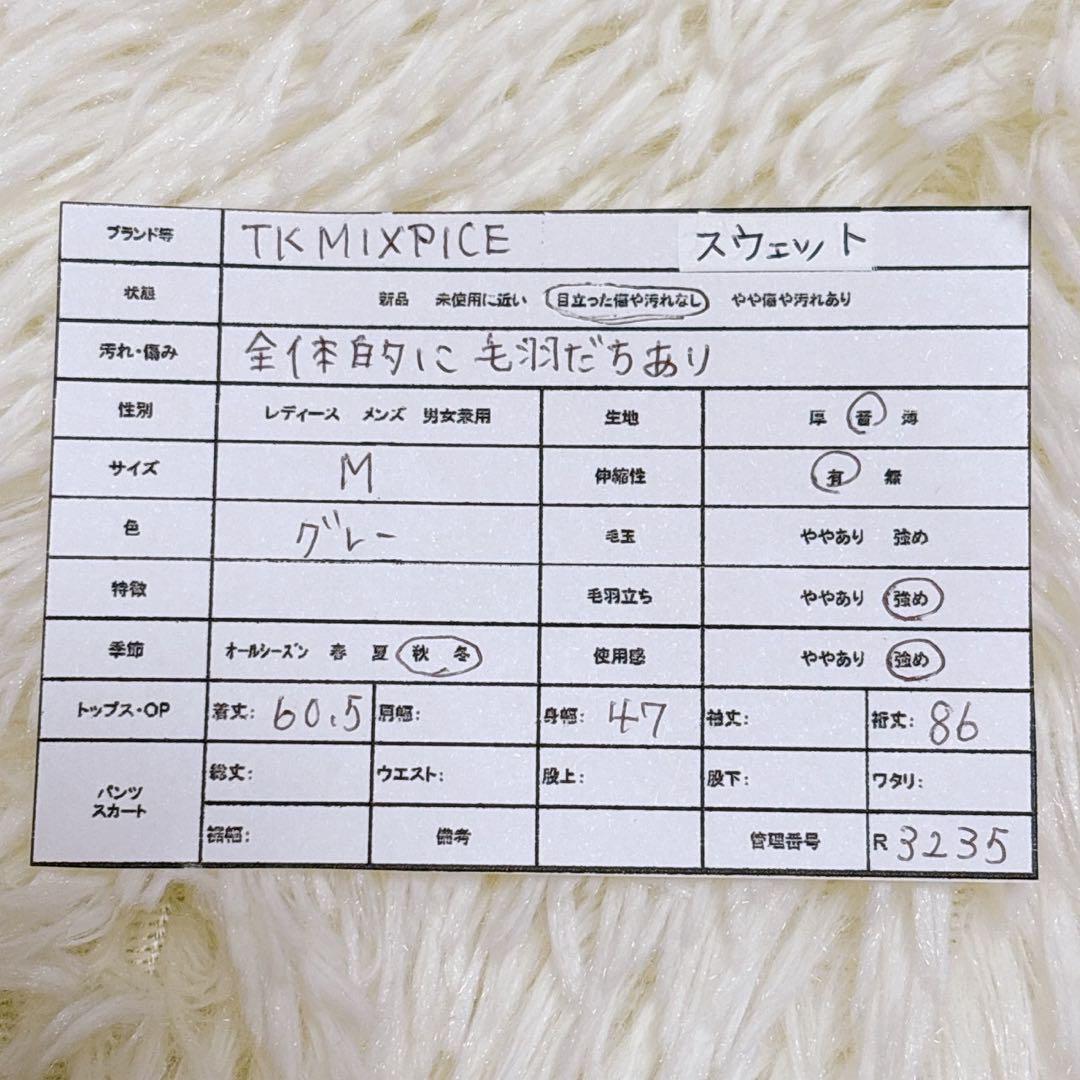 ブランド等 TK MIXPICE スウェット
状態 新品 未使用に近い 目立った傷や汚れなし やや傷や汚れあり
汚れ・傷み 全体的に毛羽だちあり
性別 レディース メンズ 男女兼用 生地 厚 普 薄
サイズ M 伸縮性 有 無
色 グレー 毛玉 ややあり 強め
特徴 毛羽立ち ややあり 強め
季節 オールシーズン 春 夏 秋 冬 使用感 ややあり 強め
トップス・OP 着丈: 60.5 肩幅: 身幅: 47 袖丈: 裄丈: 86
パンツ スカート 総丈: ウエスト: 股上: 股下: ワタリ:
裾幅: 備考 管理番号 R 3235